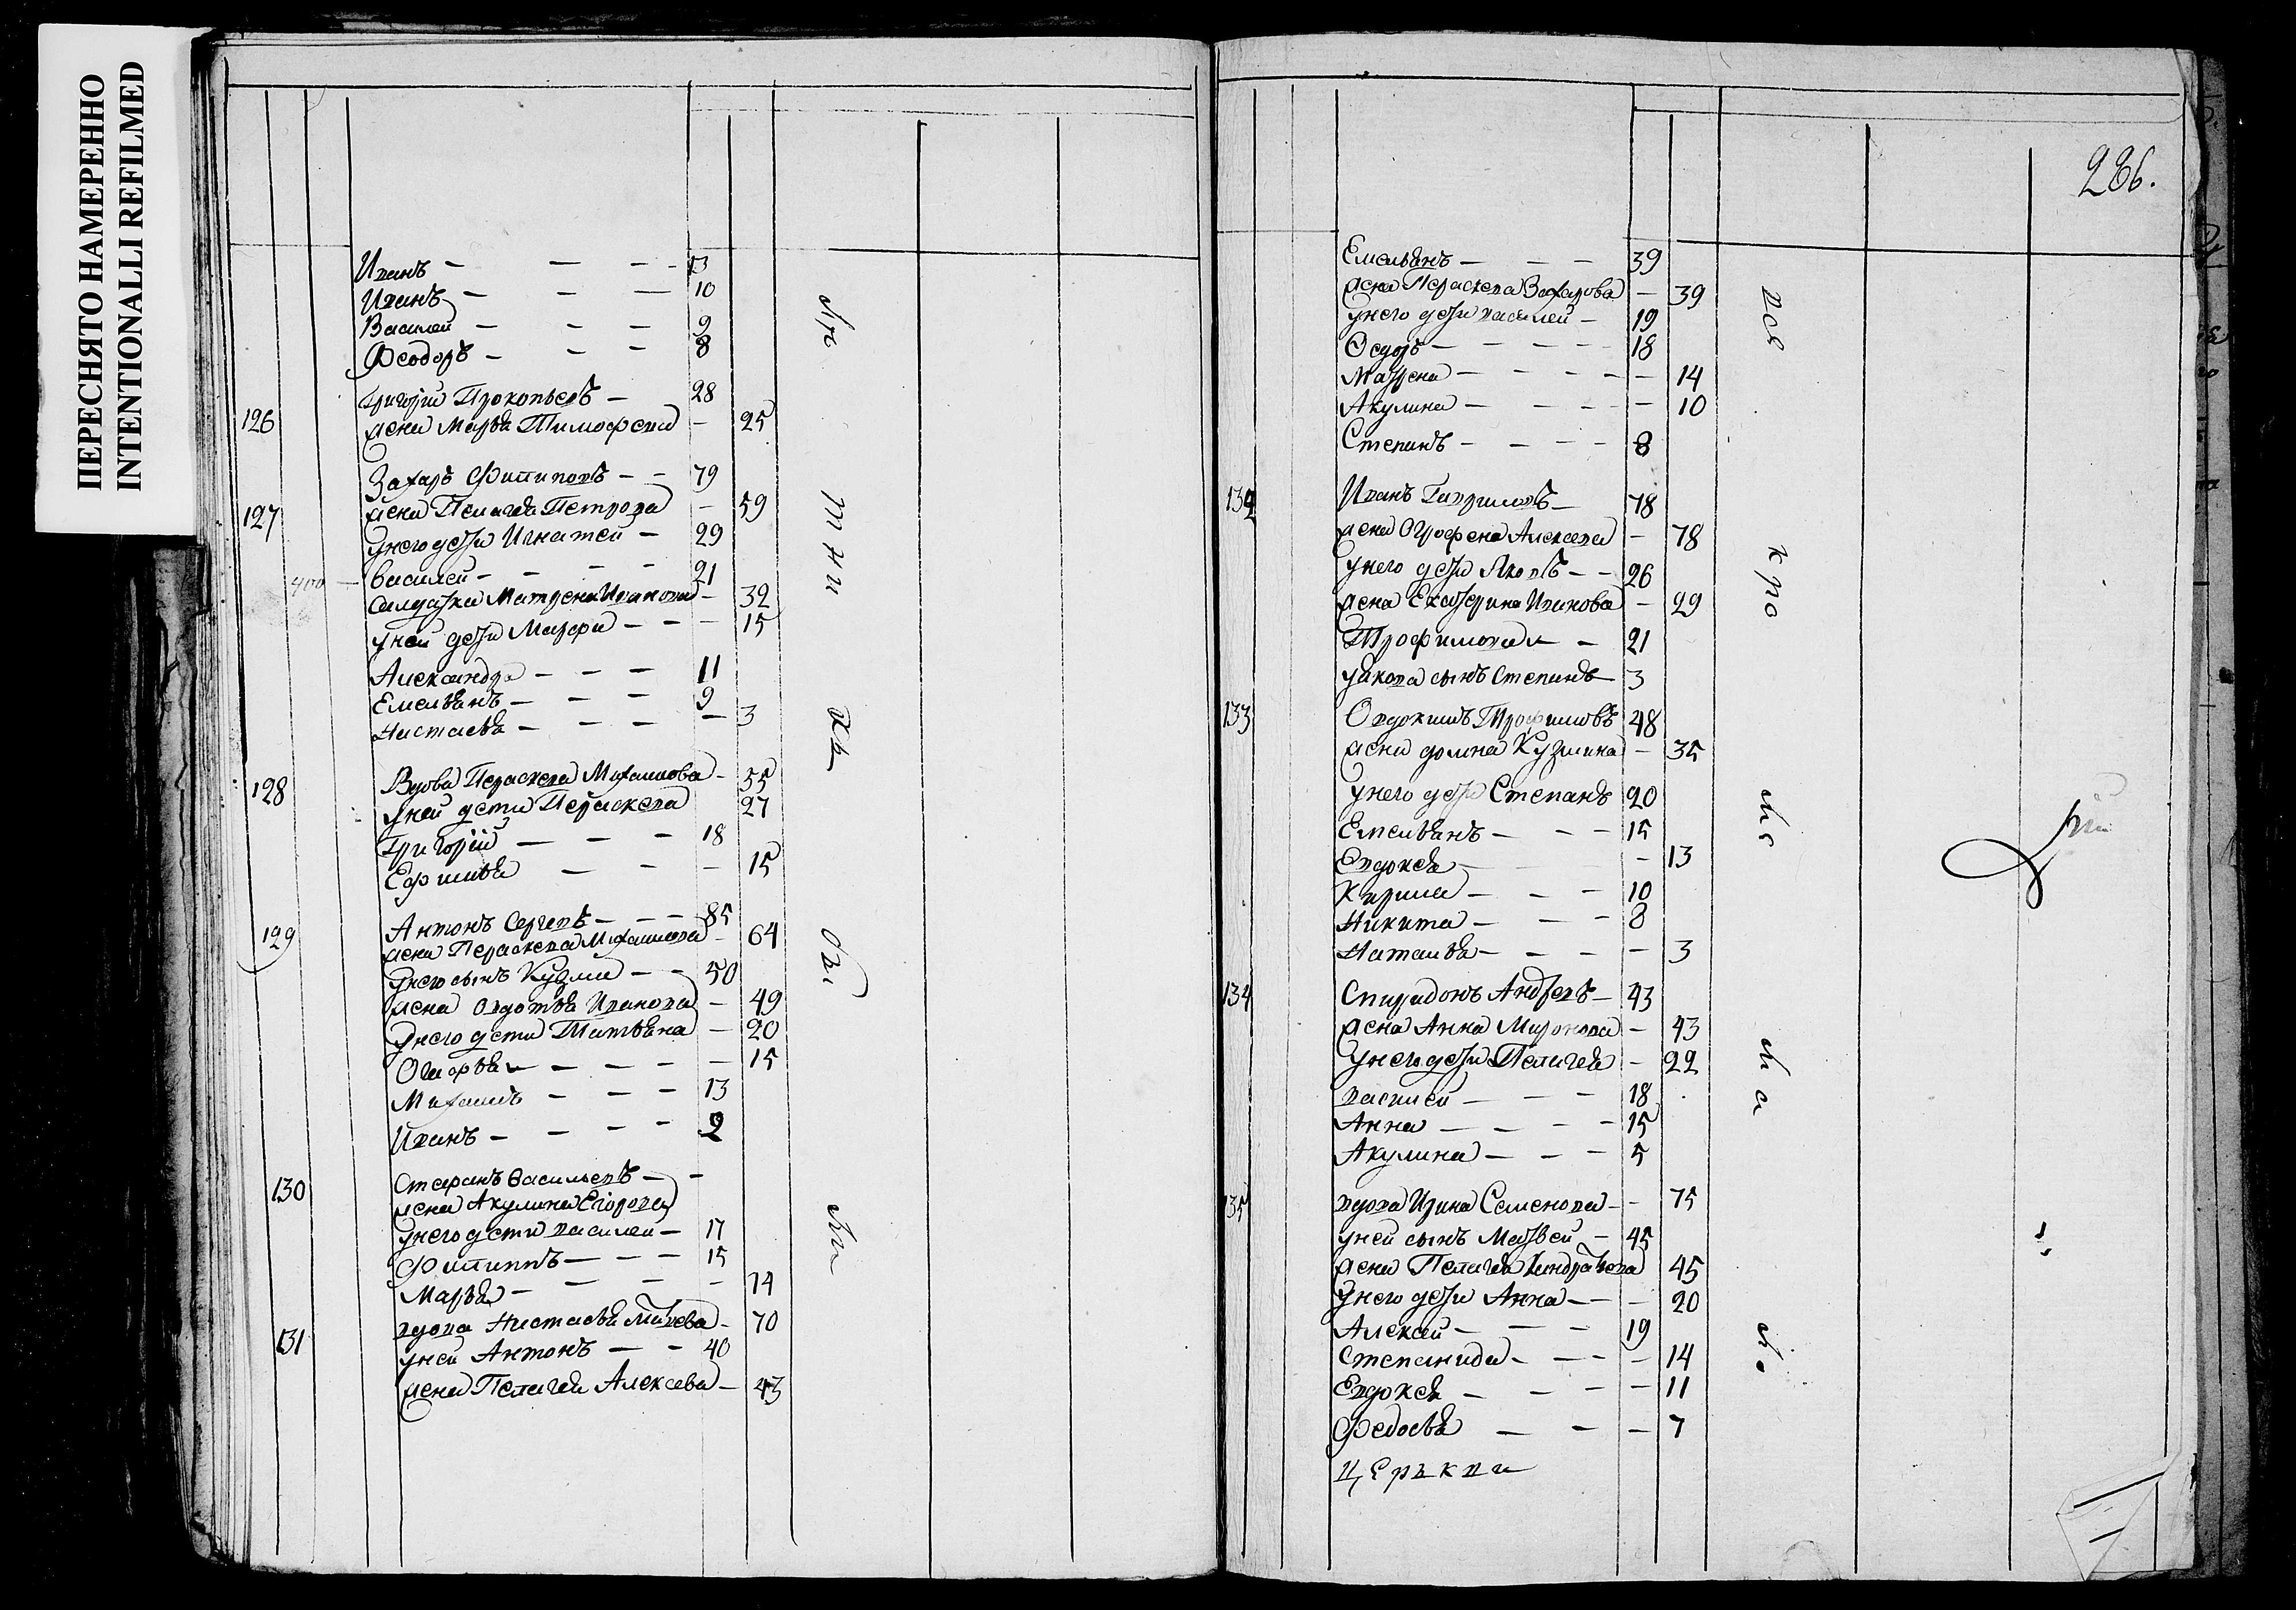 ПЕРЕСНЯТО НАМЕРЕННО
INTENTIONALLI REFILMED
Иванъ — — — 13
Иванъ — — — 10
Василей — — — 9
Феодоръ — — — 8
126 Григорій Прокопьевъ — 28
жена Марѳа Тимофеева — 25
127 Захаръ Филиповъ — — 79
жена Пелагея Петрова — 59
унего дети Игнатей — 29
Василей — — — 21
салдатка Матрена Иванова — 32
уней дети Марфа — — — 15
Александра — — — 11
Емельянъ — — — 9
Настасья — — — — 3
128 Вдова Перасковя Михаилова — 55
уней дети Перасковя 27
Григорій — — — 18
Ефимья — — — 15
129 Антонъ Сергеевъ — — — 85
жена Перасковя Михаилова — 64
унего сынъ Кузма — — 50
жена Овдотья Иванова — 49
унего дети Татьяна — 20
Огафья — — — — 15
Михаилъ — — — 13
Иванъ — — — — 2
130 Стефанъ Васильевъ — —
жена Акулина Егорова
унего дети василей — 17
Филиппъ — — — 15
Марья — — — — 14
131 вдова Настасья — 70
уней Антонъ — — 40
жена Пелагея Алексева — 43
286.
Емельянъ — — — 39
жена Перасковя Захарова — 39
унего дети василей — 19
Ѳедоръ — — — — 18
Матрена — — — — — 14
Акулина — — — — — 10
Степанъ — — — — 8
132 Иванъ Гавриловъ — 78
жена Огрофена Алексева — 78
унего дети Яковъ — — 26
жена Екатерина Иванова — 29
Трофимъ — 21
уякова сынъ Степанъ — 3
133 Овдокимъ Трофимовъ 48
жена домна Кузмина — 35
унего дети Степанъ 20
Емельянъ — — — 15
Евдокея — — 13
Кирила — — — 10
Никита — — — 8
Наталья — — — — 3
134 Спиридонъ Андреевъ — 43
жена Анна Миронова — 43
унего дети Пелагея — 22
василей — — — 18
Анна — — — — 15
Акулина — — — 5
135 вдова Ирина Семенова — — 75
уней сынъ Матвей — 45
жена Пелагея Кондратьева 45
унего дети Анна — — — 20
Алексей — — — 19
Степанида — — — — 14
Евдокея — — — — 11
Федосья — — — 7
церькви